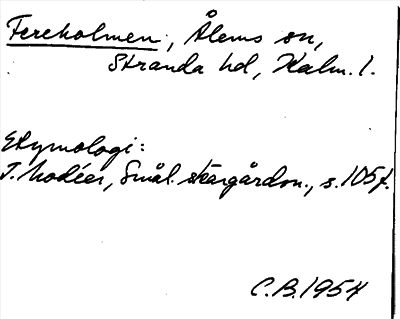 Fereholmen, Ålems sn,
Stranda hd, Kalm. l.
Etymologi:
T. Modéer, Smål. skärgårdsn., s. 105 f.
C.B. 1954